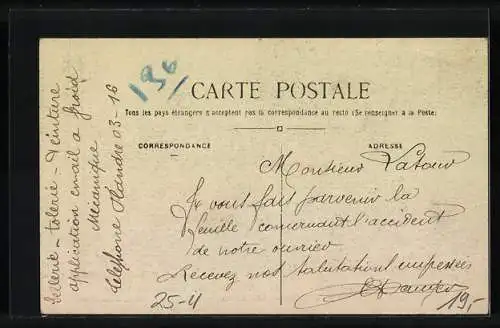 130
CARTE POSTALE
Tous les pays étrangers n'acceptent pas la correspondance au recto (Se renseigner à la Poste)
CORRESPONDANCE
ADRESSE
Monsieur Latour
Je vous fais parvenir la
feuille concernant l'accident
de notre ouvrier
Recevez nos salutations empressées
25-4
19.-
Sellerie - tolerie - Peinture
application email a froid
Mécanique
Telephone Flandre 03-16